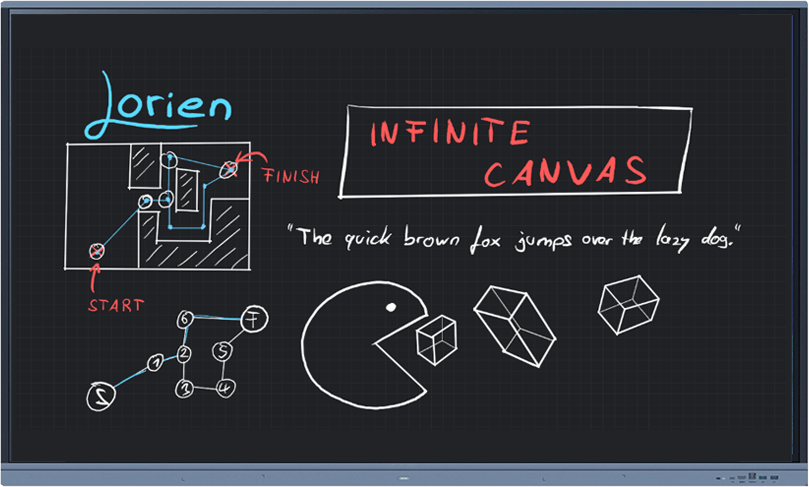 Lorien
INFINITE
CANVAS
FINISH
"The quick brown fox jumps over the lazy dog."
START
6
F
1
2
5
S
3
4